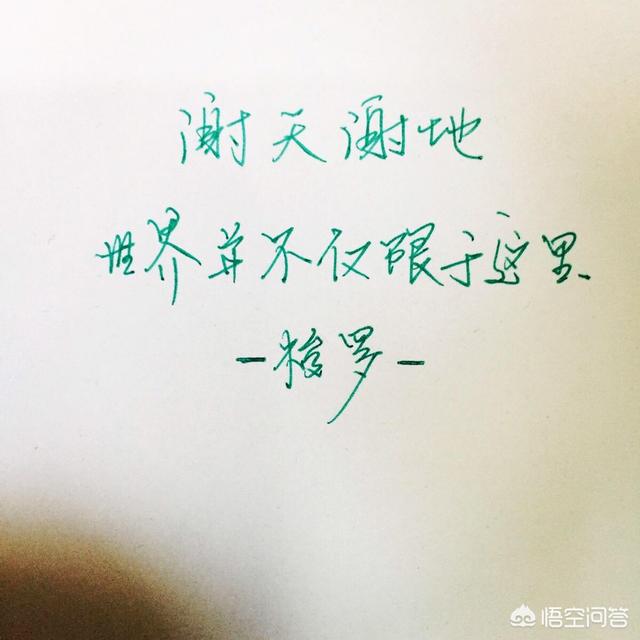 谢天谢地
世界并不仅限于这里
-梭罗-
悟空问答